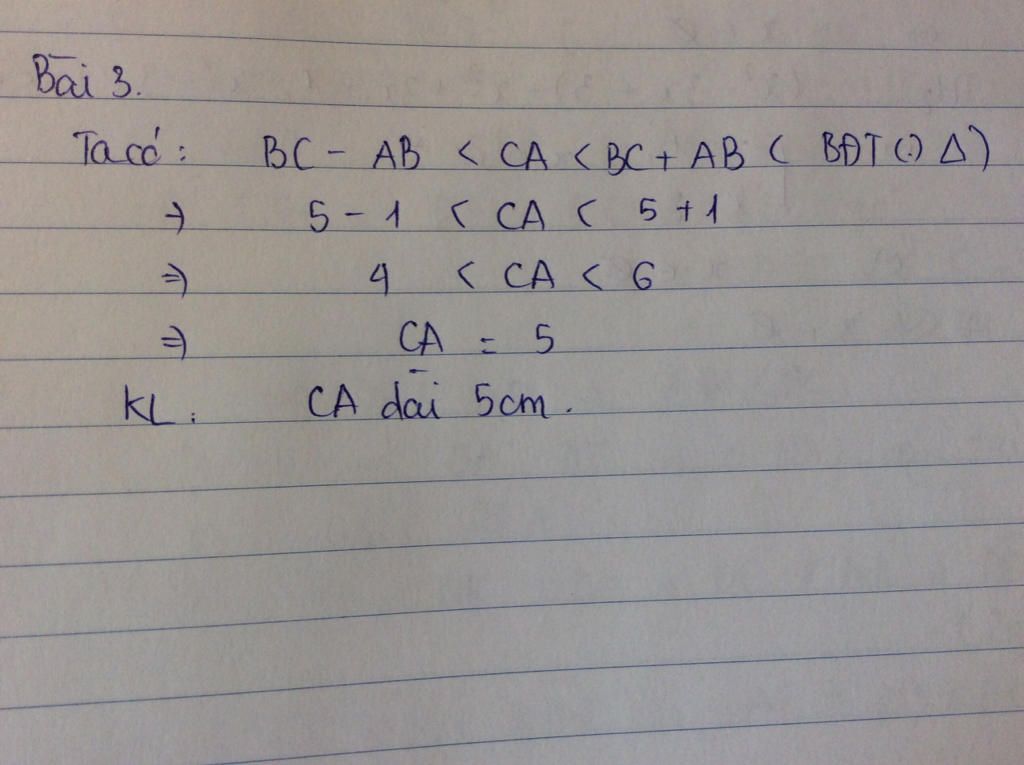 Bài 3.
Ta có: BC - AB < CA < BC + AB ( BĐT (.) Δ)
⇒ 5 - 1 < CA < 5 + 1
⇒ 4 < CA < 6
⇒ CA = 5
KL: CA dài 5cm.